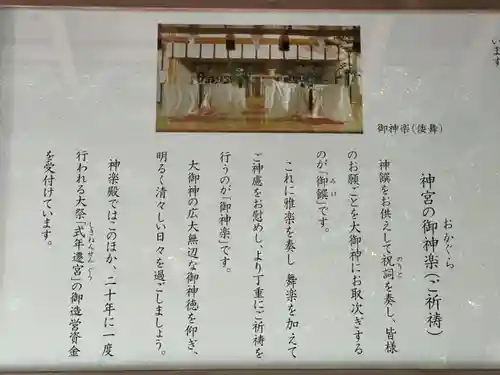 います
御神楽(倭舞)
神宮の御神楽(ご祈祷)
おかぐら
神饌をお供えして祝詞を奏し、皆様
のりと
のお願いごとを大御神にお取次ぎする
のが「御饌」です。
みけ
これに雅楽を奏し 舞楽を加えて
ご神慮をお慰めし、より丁重にご祈祷を
行うのが「御神楽」です。
大御神の広大無辺な御神徳を仰ぎ、
明るく清々しい日々を過ごしましょう。
神楽殿ではこのほか、二十年に一度
行われる大祭「式年遷宮」の御造営資金
しきねんせんぐう
を受付けています。